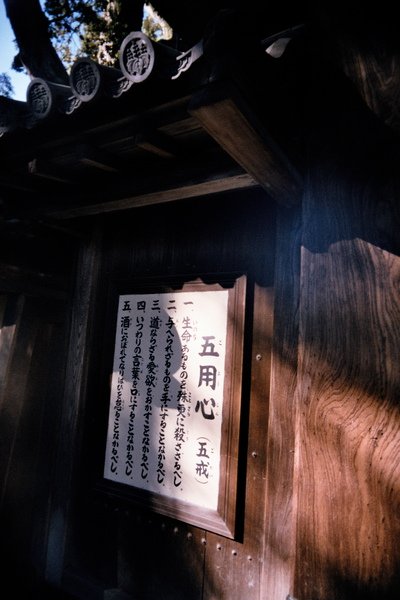 五用心(五戒)
一、生命あるものを殊更に殺さざるべし.
二、与へられざるものを手にすることなかるべし.
三、道ならざる愛欲をおかすことなかるべし.
四、いつわりの言葉を口にすることなかるべし.
五、酒におぼれてなりはひを怠ることなかるべし.